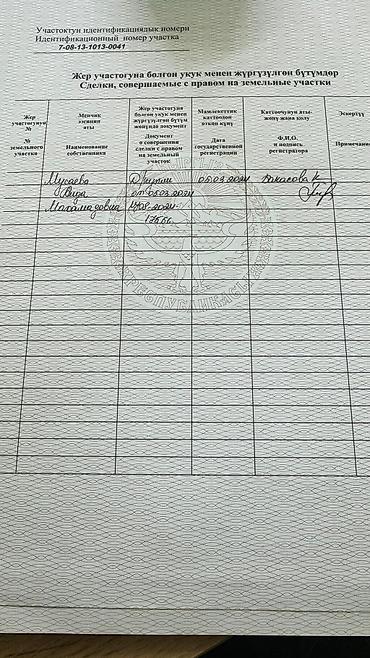 Участоктун идентификациялык номери
Идентификационный номер участка
7-08-13-1013-0041
Жер участогуна болгон укук менен жүргүзүлгөн бүтүмдөр
Сделки, совершаемые с правом на земельные участки
Жер участогунун №
№ земельного участка
Менчик ээсинин аты
Наименование собственника
Жер участогуна болгон укук менен жүргүзүлгөн бүтүм жөнүндө документ
Документ о совершении сделки с правом на земельный участок
Мамлекеттик каттоодон өткөн күнү
Дата государственной регистрации
Каттоочунун аты-жөнү жана колу
Ф.И.О. и подпись регистратора
Эскертүү
Примечание
Мусаева
05.03.2024
от 05.03.2024
КЫРГЫЗ РЕСПУБЛИКАСЫ